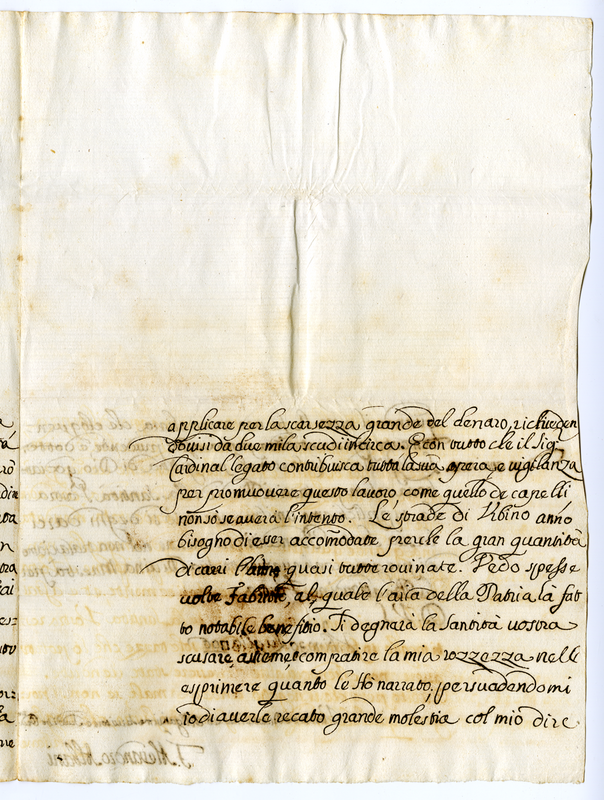 applicare per la scarsezza grande del denaro, richieden
dovisi da due mila scudi incirca. E con tutto che il Sig.
Cardinal legato contribuisca tutta la sua opera, e vigilanza
per promuovere questo lavoro come quello de canelli
non so se averà l'intento. Le strade di Urbino anno
bisogno di esser accomodate perche la gran quantità
di carri l'anno quasi tutte rovinate. Vedo spesse
volte Fabritio, al quale l'aria della Patria là fat
to notabile benefitio. Si degnarà la Santità vostra
scusare, assieme, e compatire la mia rozzezza nell
esprimere quanto le Hò narrato, persuadendomi
io di averle recato grande molestia col mio dire